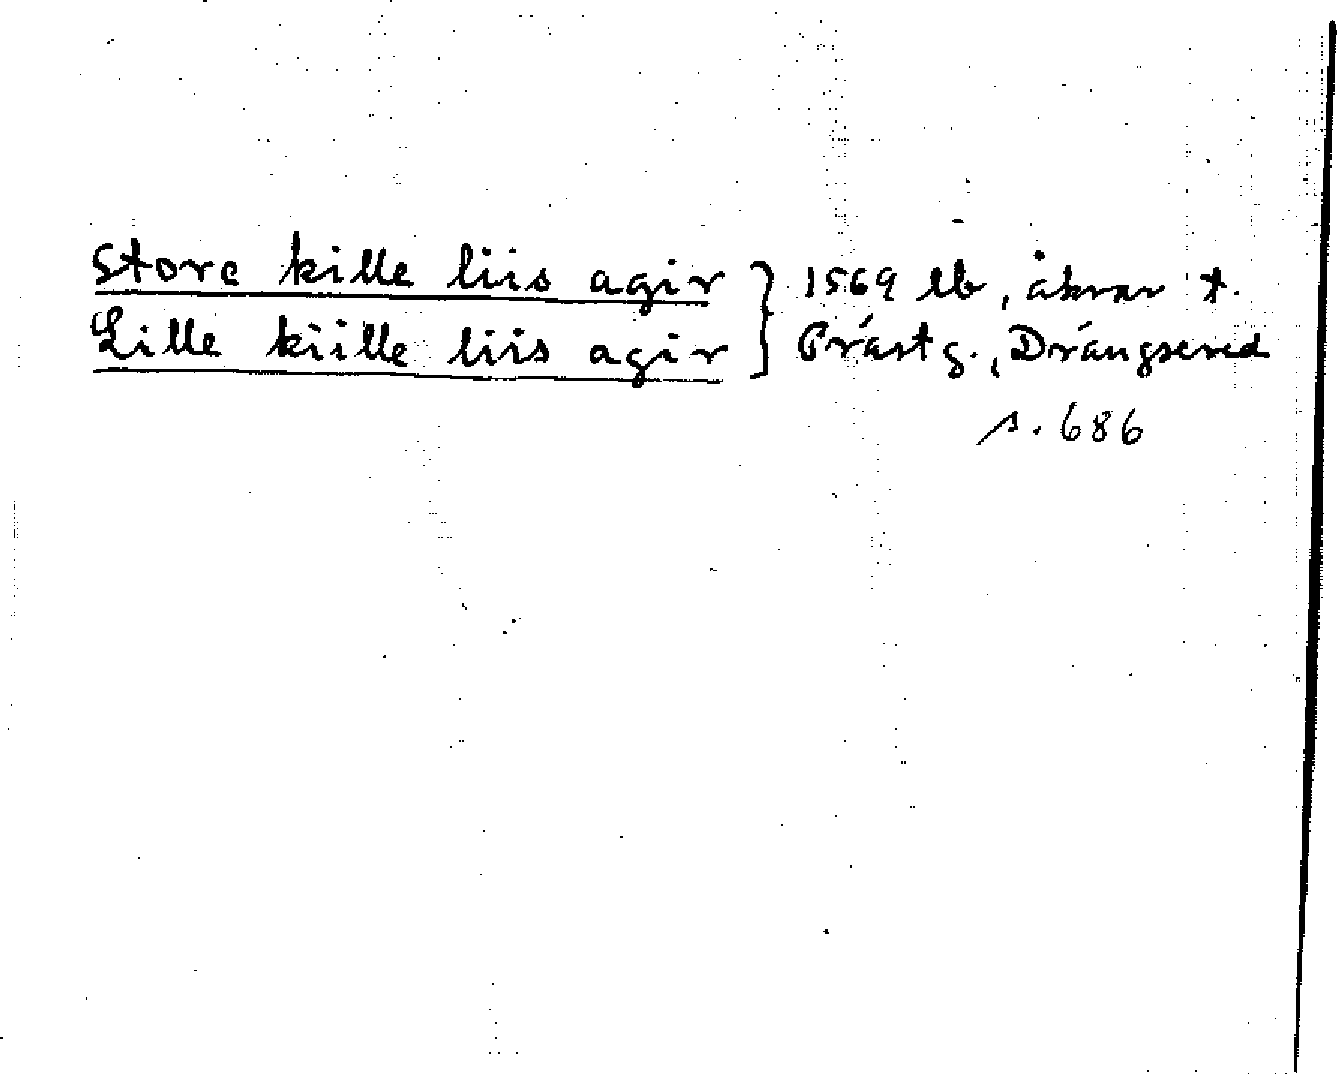 Store kille liis agir } 1569 lb, åkrar t.
Lille kiille liis agir } Prästg., Drängsered
s. 686